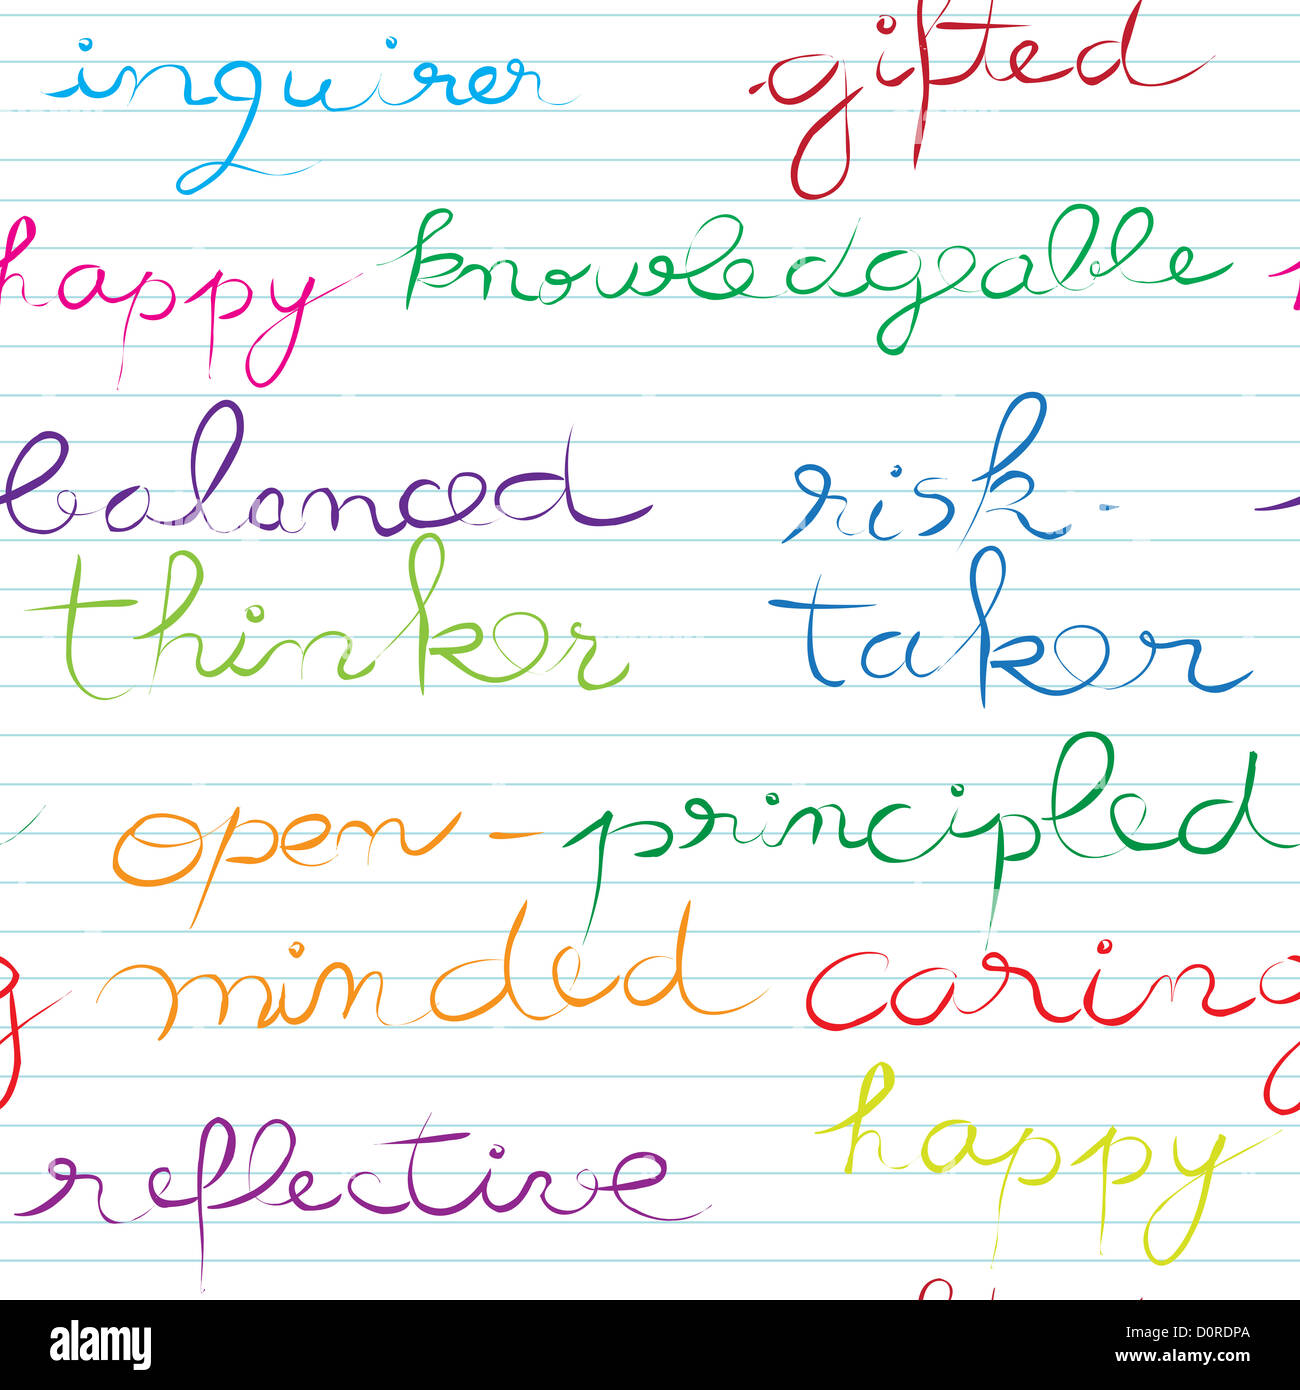 inquirer gifted
happy knowledgeable
balanced risk-
thinker taker
open- principled
minded caring
reflective happy
alamy
Image ID: D0RDPA
www.alamy.com